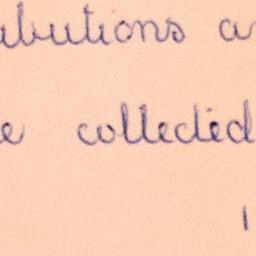 ibutions a
e collected